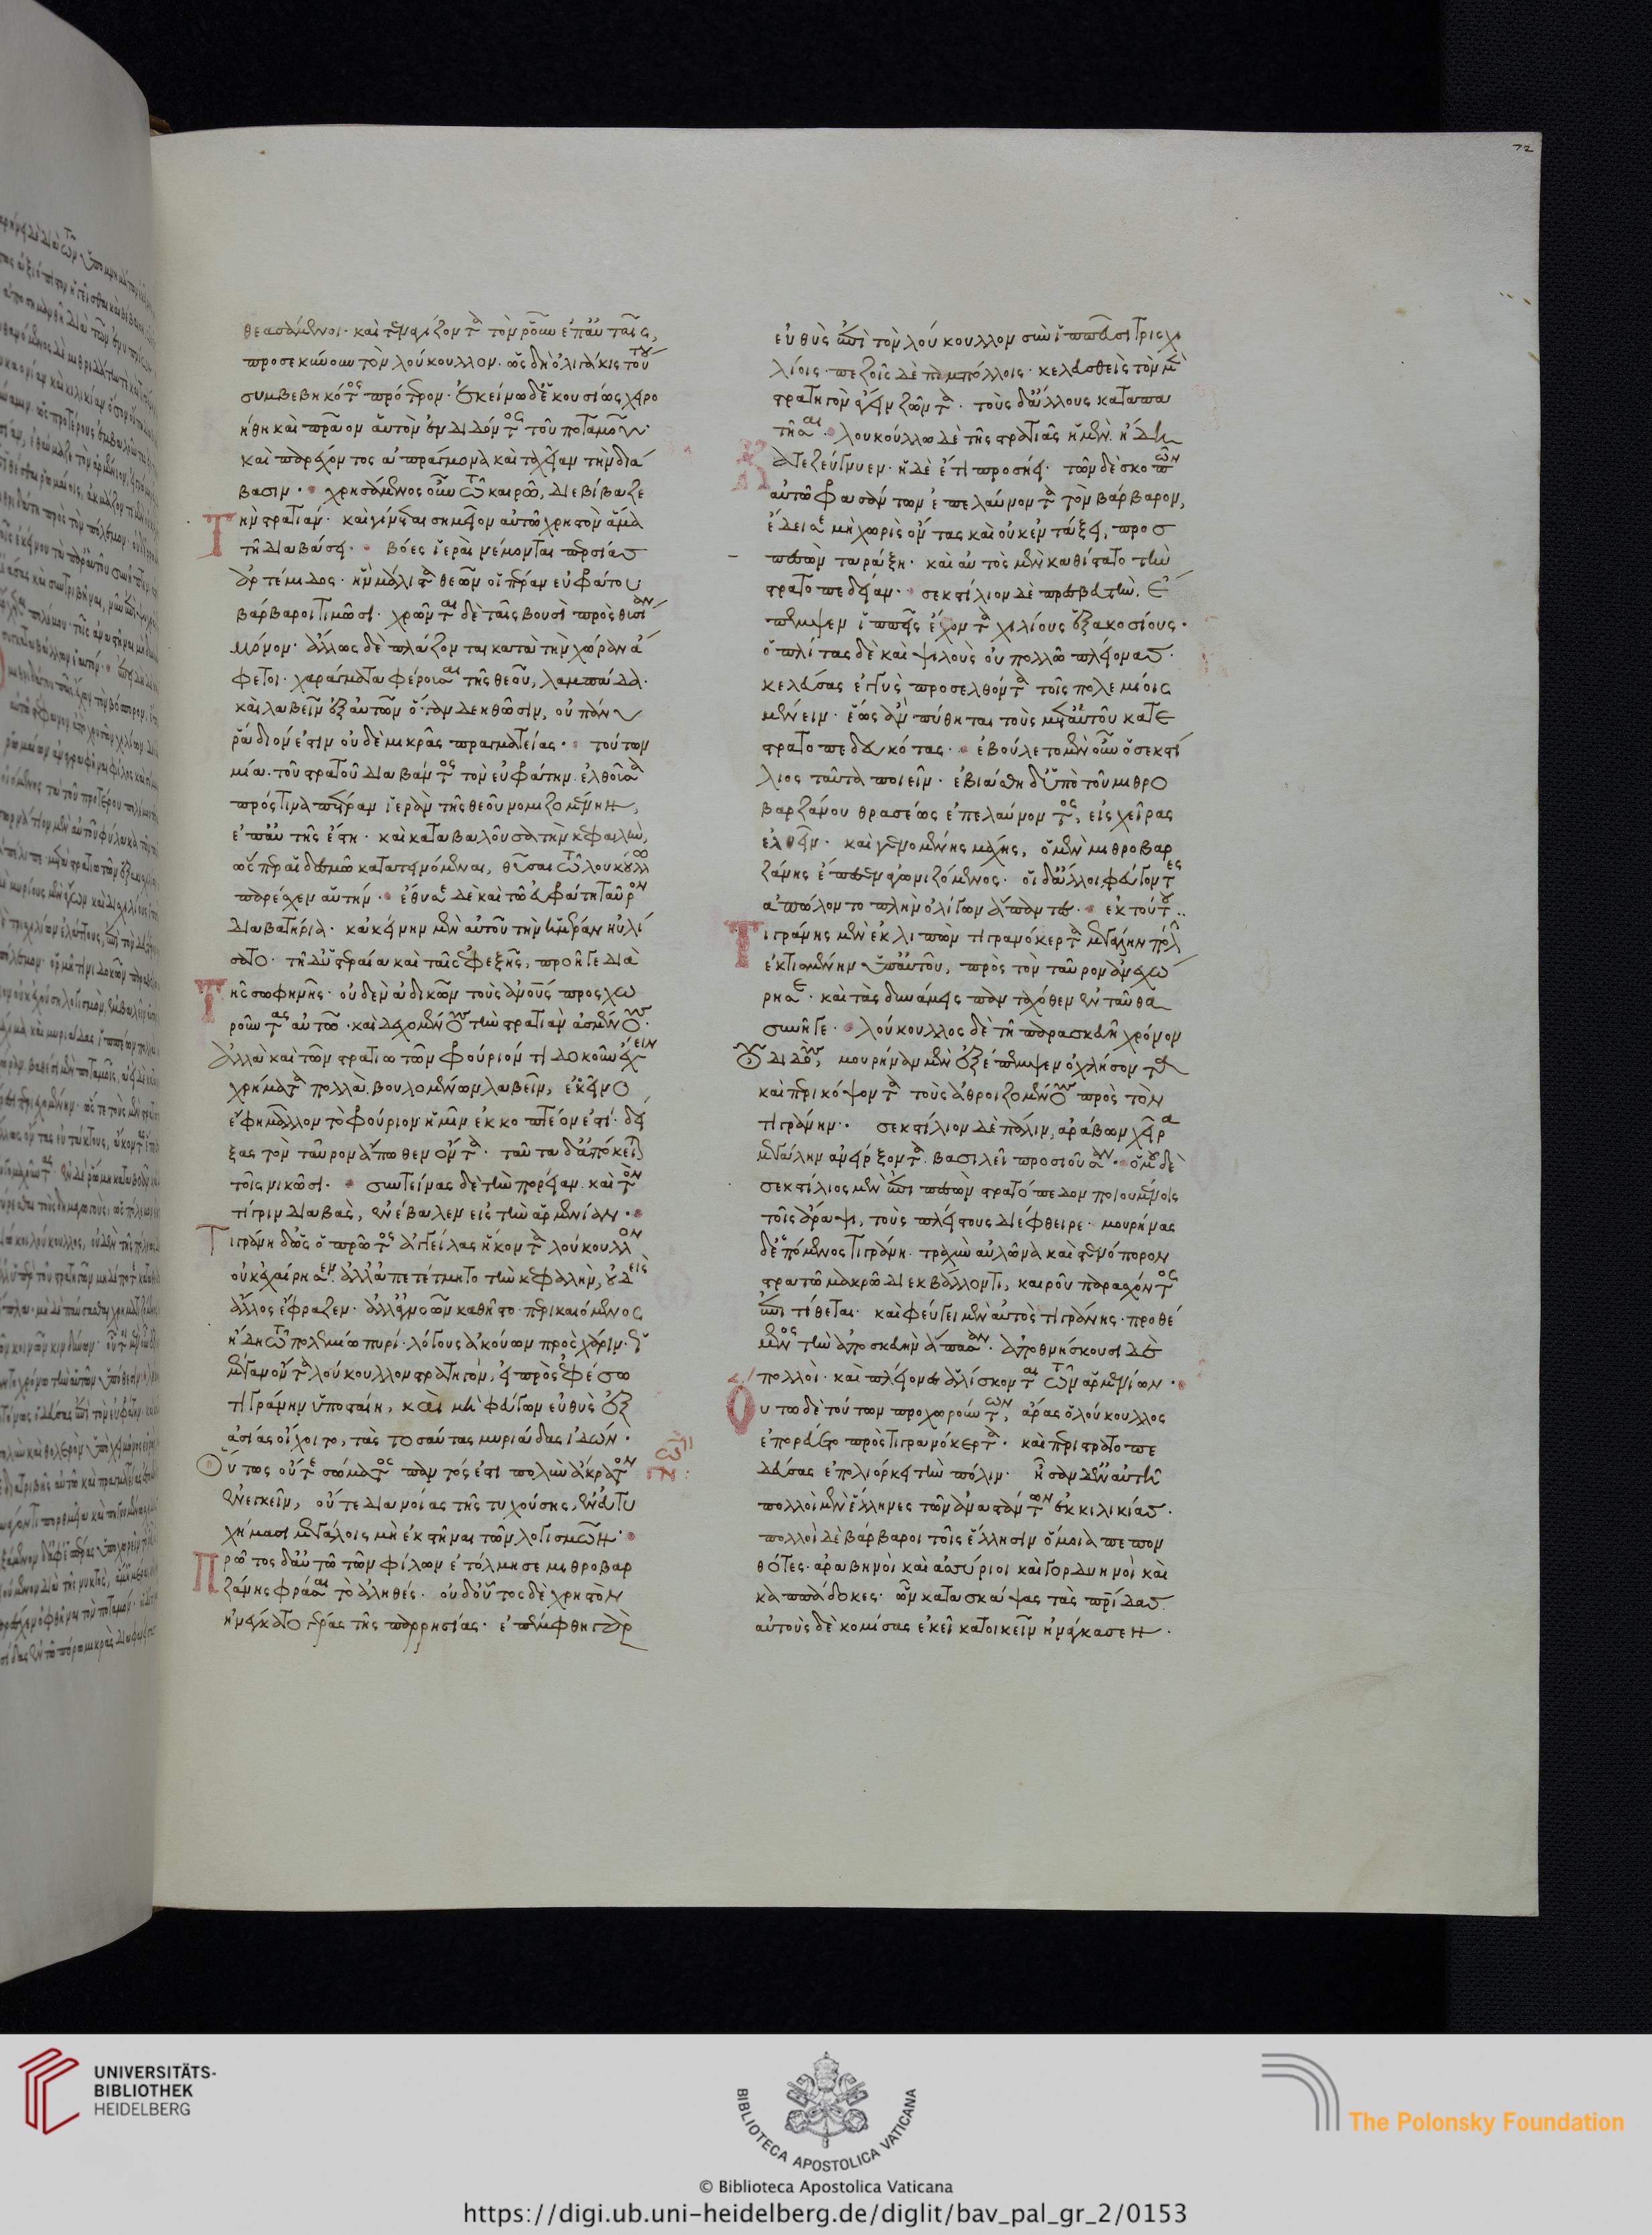 θεασάμενοι· καὶ τεμαχίζοντα τὸν ῥοῦν ἐπ' αὐταῖς,
προσεκύνουν τὸν λούκουλλον. ὡς δὴ ὀλιγάκις τούτου
συμβεβηκότος πρότερον· ἐκείνω δὲ ἑκουσίως χειρο
ήθη καὶ πρᾶον αὑτὸν ἐνδιδόντος τοῦ ποταμοῦ·
καὶ παρέχοντος ἀπράγμονα καὶ ταχεῖαν τὴν διά
βασιν· χρησάμενος οὖν τῶ καιρῶ, διεβίβαζε
τὴν στρατιάν· καὶ γίνεται σημεῖον αὐτῶ χρηστὸν ἅμα
τῆ διαβάσει· βόες ἱεραὶ νέμονται περσίας
ἀρτέμιδος· ἣν μάλιστα θεῶν οἱ πέραν εὐφράτου
βάρβαροι τιμῶσι· χρῶνται δὲ ταῖς βουσὶ πρὸς θυσίαν
μόνον· ἄλλως δὲ πλάζονται κατὰ τὴν χώραν ἄ
φετοι· χαράγματα φέρουσαι τῆς θεοῦ, λαμπάδα·
καὶ λαβεῖν ἐξ αὐτῶν ὅταν δεηθῶσιν, οὐ πάνυ
ῥάδιόν ἐστιν οὐδὲ μικρᾶς πραγματείας· τούτων
μία. τοῦ στρατοῦ διαβάντος τὸν εὐφράτην. ἐλθοῦσα
πρός τινα πέτραν ἱερὰν τῆς θεοῦ νομιζομένην,
ἐπ' αὐτῆς ἔστη· καὶ καταβαλοῦσα τὴν κεφαλὴν,
ὥσπερ αἱ δεσμῶ κατατεινόμεναι, θῦσαι τῶ λουκούλλω
παρέσχεν αὑτήν· ἔθυσε δὲ καὶ τῶ εὐφράτη ταῦρον
διαβατήρια· κἀκείνην μὲν αὐτοῦ τὴν ἡμέραν ηὐλί
σατο· τῆ δ' ὑστεραία καὶ ταῖς ἐφεξῆς, προῆγε διὰ
τῆς σωφηνῆς· οὐδὲν ἀδικῶν τοὺς ἀνθρώπους προσχω
ροῦντας αὐτῶ· καὶ δεχομένους τὴν στρατιὰν ἀσμένως·
ἀλλὰ καὶ τῶν στρατιωτῶν φρούριόν τι δοκοῦν ἔχειν
χρήματα πολλὰ. βουλομένων λαβεῖν, ἐκεῖνο
ἔφη μᾶλλον τὸ φρούριον ἡμῖν ἐκκοπτέον ἐστί· δεί
ξας τὸν ταῦρον ἄπωθεν ὄντα· ταῦτα δ' ἀπόκειται
τοῖς νικῶσι· συντείνας δὲ τὴν πορείαν καὶ τὸν
τίγριν διαβὰς, ἐνέβαλεν εἰς τὴν ἀρμενίαν·
Τιγράνη δ' ὡς ὁ πρῶτος ἀγγείλας ἥκοντα λούκουλλον
οὐκ ἔχαίρησεν. ἀλλ' ἀπετέτμητο τὴν κεφαλὴν, οὐδεὶς
ἄλλος ἔφραζεν· ἀλλ' ἀγνοῶν καθῆστο· περικαιόμενος
ἤδη τῶ πολεμίω πυρί· λόγους ἀκούων πρὸς χάριν·
μέγαν ὄντα λούκουλλον στρατηγόν, εἰ πρὸς ἐφέσω
τιγράνην ὑποσταίη, καὶ μὴ φεύγων εὐθὺς ἐξ
ἀσίας οἴχοιτο, τὰς τοσαύτας μυριάδας ἰδών·
Οὕτως οὔτε σώματος παντός ἐστι πολὺν ἄκρατον
ἐνεγκεῖν, οὔτε διανοίας τῆς τυχούσης, ἐν εὐτυ
χήμασι μεγάλοις μὴ ἐκστῆναι τῶν λογισμῶν·
Πρῶτος δ' αὐτῶ τῶν φίλων ἐτόλμησε μιθροβαρ
ζάνης φράσαι τὸ ἀληθές· οὐδ' οὗτος δὲ χρηστὸν
ἠνέγκατο γέρας τῆς παρρησίας· ἐπέμφθη γὰρ
εὐθὺς ἐπὶ τὸν λούκουλλον σὺν ἱππεῦσι τρισχι
λίοις· πεζοῖς δὲ παμπόλλοις· κελευσθεὶς τὸν μὲν
στρατηγὸν ἄγειν ζῶντα· τοὺς δ' ἄλλους καταπα
τῆσαι· λουκούλλω δὲ τῆς στρατιᾶς ἡ μὲν ἤδη
κατεζεύγνυεν· ἡ δὲ ἔτι προσήει· τῶν δὲ σκοπῶν
αὐτῶ φρασάντων ἐπελαύνοντα τὸν βάρβαρον,
ἔδεισε μὴ χωρὶς ὄντας καὶ οὐκ ἐν τάξει, προσ
πεσὼν ταράξη· καὶ αὐτὸς μὲν καθίστατο τὴν
στρατοπεδείαν· σεκστίλιον δὲ πρεσβευτὴν. ἔ
πεμψεν ἱππεῖς ἔχοντα χιλίους ἑξακοσίους·
ὁπλίτας δὲ καὶ ψιλοὺς οὐ πολλῶ πλείονας·
κελεύσας ἐγγὺς προσελθόντα τοῖς πολεμίοις
μένειν· ἕως ἂν πύθηται τοὺς μετ' αὐτοῦ κατε
στρατοπεδευκότας· ἐβούλετο μὲν οὖν ὁ σεκστί
λιος ταῦτα ποιεῖν· ἐβιάσθη δ' ὑπὸ τοῦ μιθρο
βαρζάνου θρασέως ἐπελαύνοντος, εἰς χεῖρας
ἐλθεῖν· καὶ γενομένης μάχης, ὁ μὲν μιθροβαρ
ζάνης ἔπεσεν ἀγωνιζόμενος· οἱ δ' ἄλλοι φεύγοντες
ἀπώλοντο πλὴν ὀλίγων ἅπαντες· ἐκ τούτου
Τιγράνης μὲν ἐκλιπὼν τιγρανόκερτα μεγάλην πόλιν
ἐκτισμένην ὑπ' αὐτοῦ, πρὸς τὸν ταῦρον ἀνεχώ
ρησε· καὶ τὰς δυνάμεις πανταχόθεν ἐνταῦθα
συνῆγε· λούκουλλος δὲ τῆ παρασκευῆ χρόνον
οὐ διδοὺς, μουρήναν μὲν ἐξέπεμψεν ὀχλήσοντα
καὶ περικόψοντα τοὺς ἀθροιζομένους πρὸς τὸν
τιγράνην· σεκστίλιον δὲ πάλιν, ἀράβων χεῖρα
μεγάλην ἀνείρξοντα. βασιλεῖ προσιοῦσαν· ὁμοῦ δὲ
σεκστίλιος μὲν ἐπιπεσὼν στρατόπεδον ποιουμένοις
τοῖς ἄραψι, τοὺς πλείστους διέφθειρε· μουρήνας
δ' ἑπόμενος τιγράνη. τραχὺν αὐλῶνα καὶ στενόπορον
στρατῶ μακρῶ διεκβάλλοντι, καιροῦ παρασχόντος
ἐπιτίθεται· καὶ φεύγει μὲν αὐτὸς τιγράνης· προθέ
μενος τὴν ἀποσκευὴν ἅπασαν· ἀποθνήσκουσι δὲ
πολλοί· καὶ πλείονες ἁλίσκονται τῶν ἀρμενίων·
Οὕτω δὲ τούτων προχωρούντων, ἄρας ὁ λούκουλλος
ἐπορεύετο πρὸς τιγρανόκερτα· καὶ περιστρατοπε
δεύσας ἐπολιόρκει τὴν πόλιν· ἦσαν δ' ἐν αὐτῆ
πολλοὶ μὲν ἕλληνες τῶν ἀναστάντων ἐκ κιλικίας·
πολλοὶ δὲ βάρβαροι τοῖς ἕλλησιν ὅμοια πεπον
θότες· ἀραβηνοὶ καὶ ἀσσύριοι καὶ γορδυηνοὶ καὶ
καππάδοκες· ὧν κατασκάψας τὰς πατρίδας
αὐτοὺς δὲ κομίσας ἐκεῖ κατοικεῖν ἠνάγκασεν·
72
UNIVERSITÄTS-
BIBLIOTHEK
HEIDELBERG
BIBLIOTECA APOSTOLICA VATICANA
The Polonsky Foundation
© Biblioteca Apostolica Vaticana
https://digi.ub.uni-heidelberg.de/diglit/bav_pal_gr_2/0153